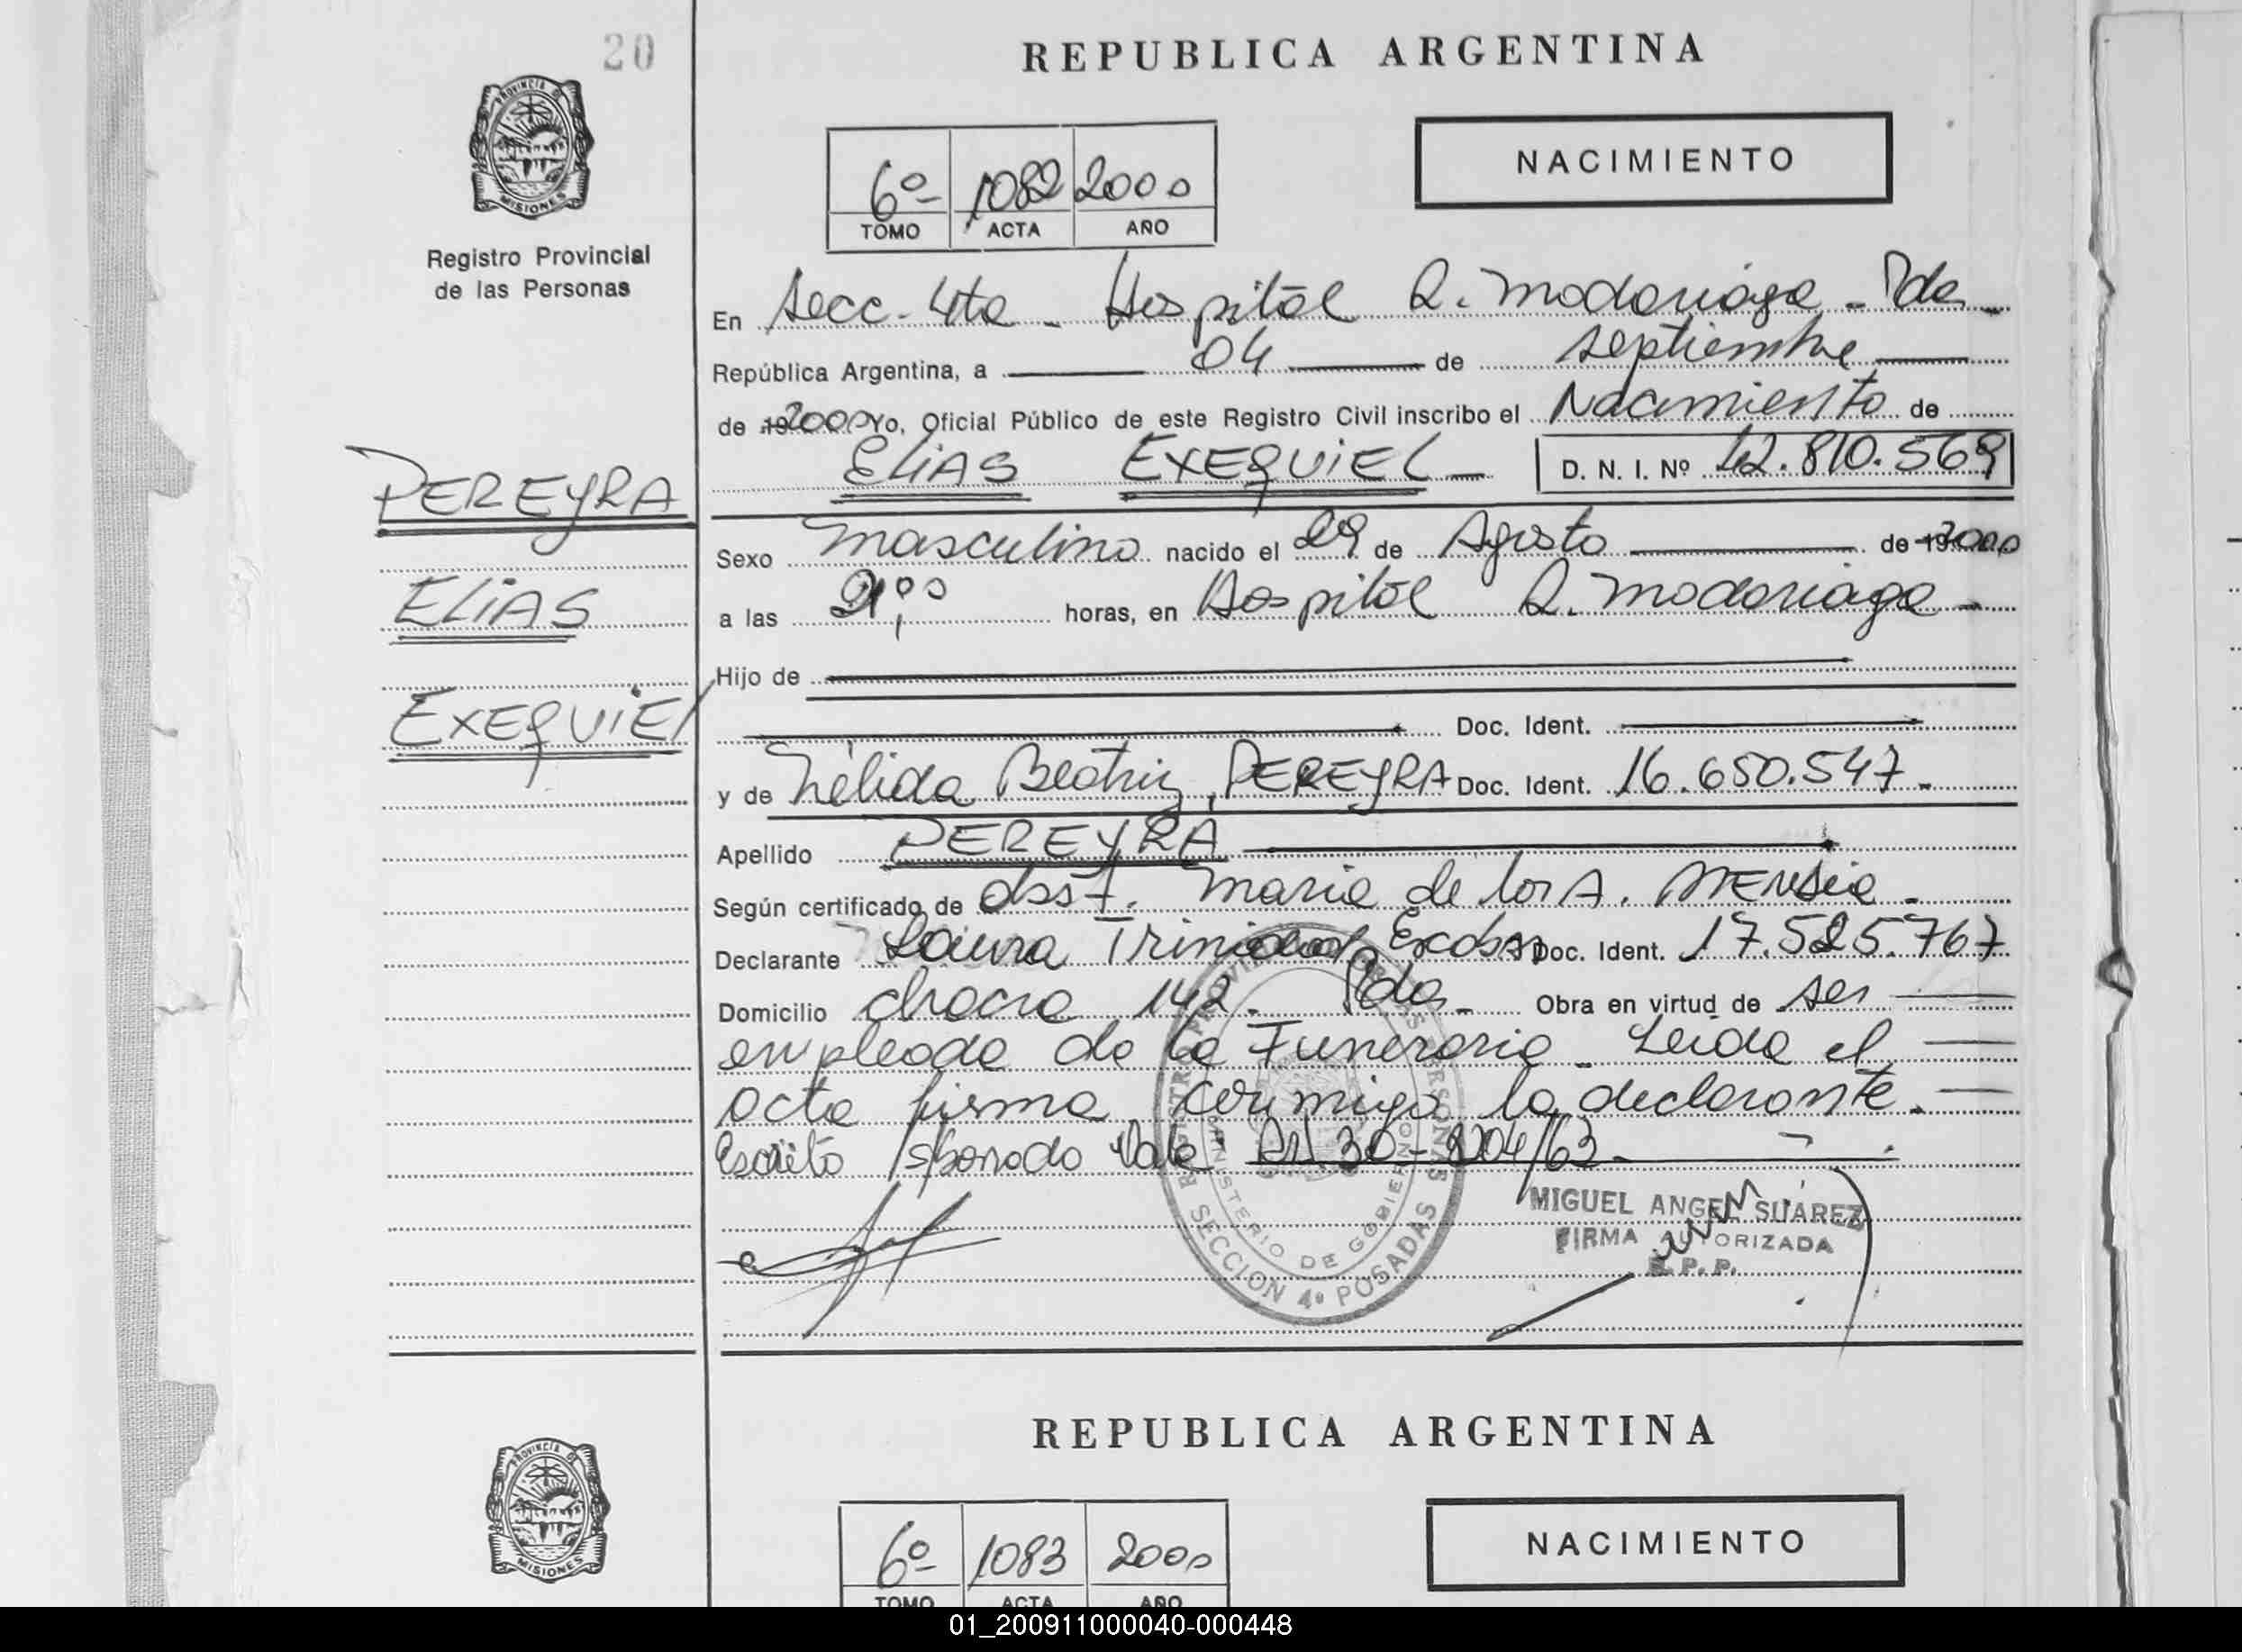 20
REPUBLICA ARGENTINA
PROVINCIA DE
MISIONES
NACIMIENTO
6º 1082 2000
TOMO ACTA AÑO
Registro Provincial
de las Personas
En Secc. 4ta - Hospital R. Madariaga - Pdas
República Argentina, a 04 de septiembre
de 19 2000 Yo, Oficial Público de este Registro Civil inscribo el Nacimiento de
ELIAS EXEQUIEL D. N. I. Nº 42.810.569
PEREYRA
ELIAS
EXEQUIEL
Sexo masculino nacido el 29 de Agosto de 19 2000
a las 21,00 horas, en Hospital R. Madariaga
Hijo de
Doc. Ident.
y de Nélida Beatriz, PEREYRA Doc. Ident. 16.650.547.-
Apellido PEREYRA
Según certificado de obst. Maria de los A.
Declarante Laura Trinidad Escobar Doc. Ident. 17.525.767
Domicilio chacra 142. Pdas - Obra en virtud de ser
empleada de la Funeraria - Leída el
acta firma conmigo la declarante.
Escrito s/borrado Vale 30 - 8204/63.
REGISTRO PROVINCIAL DE LAS PERSONAS
MINISTERIO DE GOBIERNO
SECCION 4º POSADAS
MIGUEL ANGEL SUAREZ
FIRMA AUTORIZADA
R. P. P.
REPUBLICA ARGENTINA
PROVINCIA DE
MISIONES
NACIMIENTO
6º 1083 2000
TOMO ACTA AÑO
01_200911000040-000448